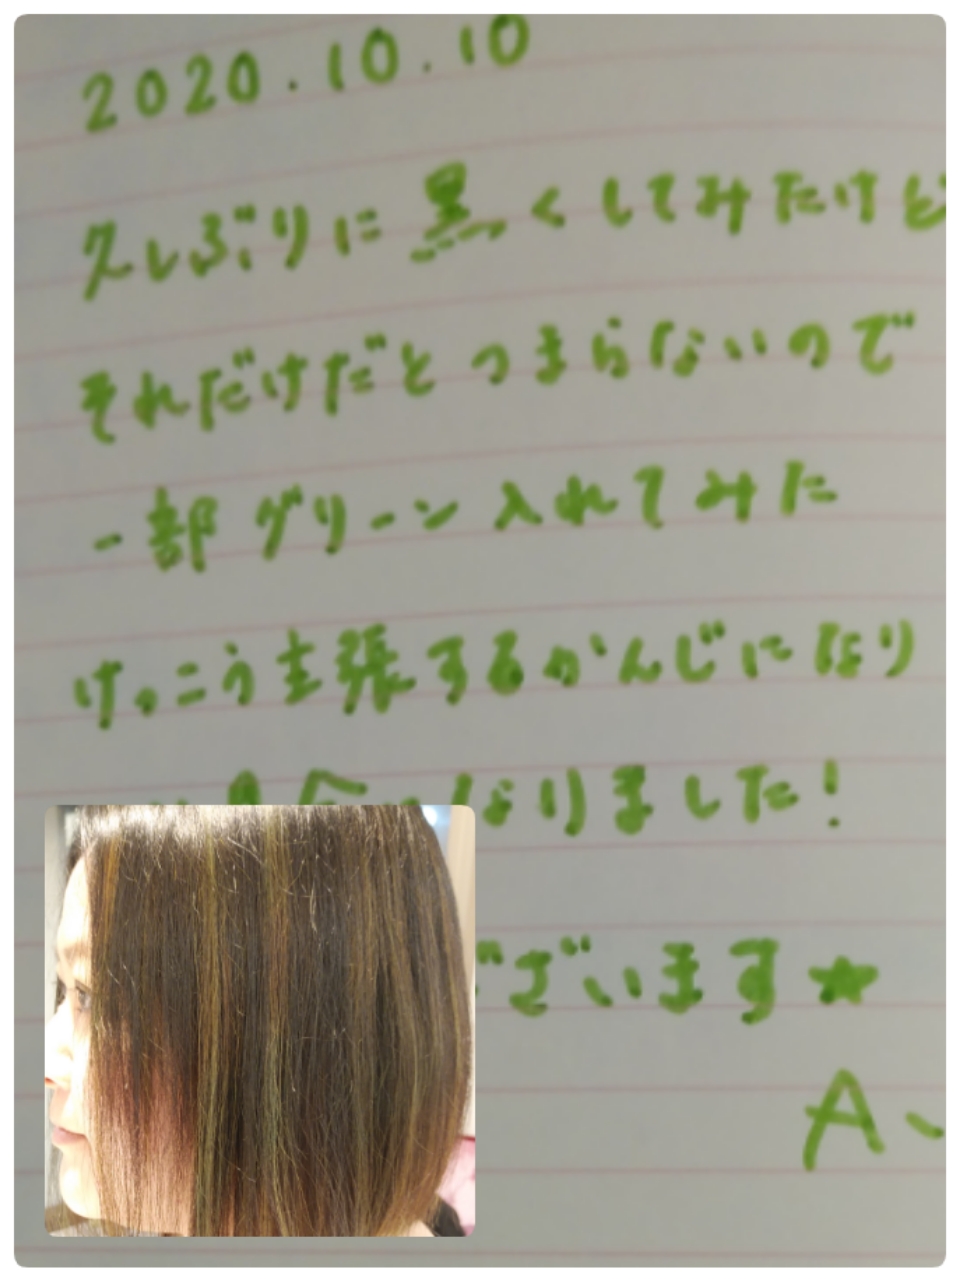 2020.10.10
久しぶりに黒くしてみたけど
それだけだとつまらないので
一部グリーン入れてみた
けっこう主張するかんじになり
なりました!
ございます★
A